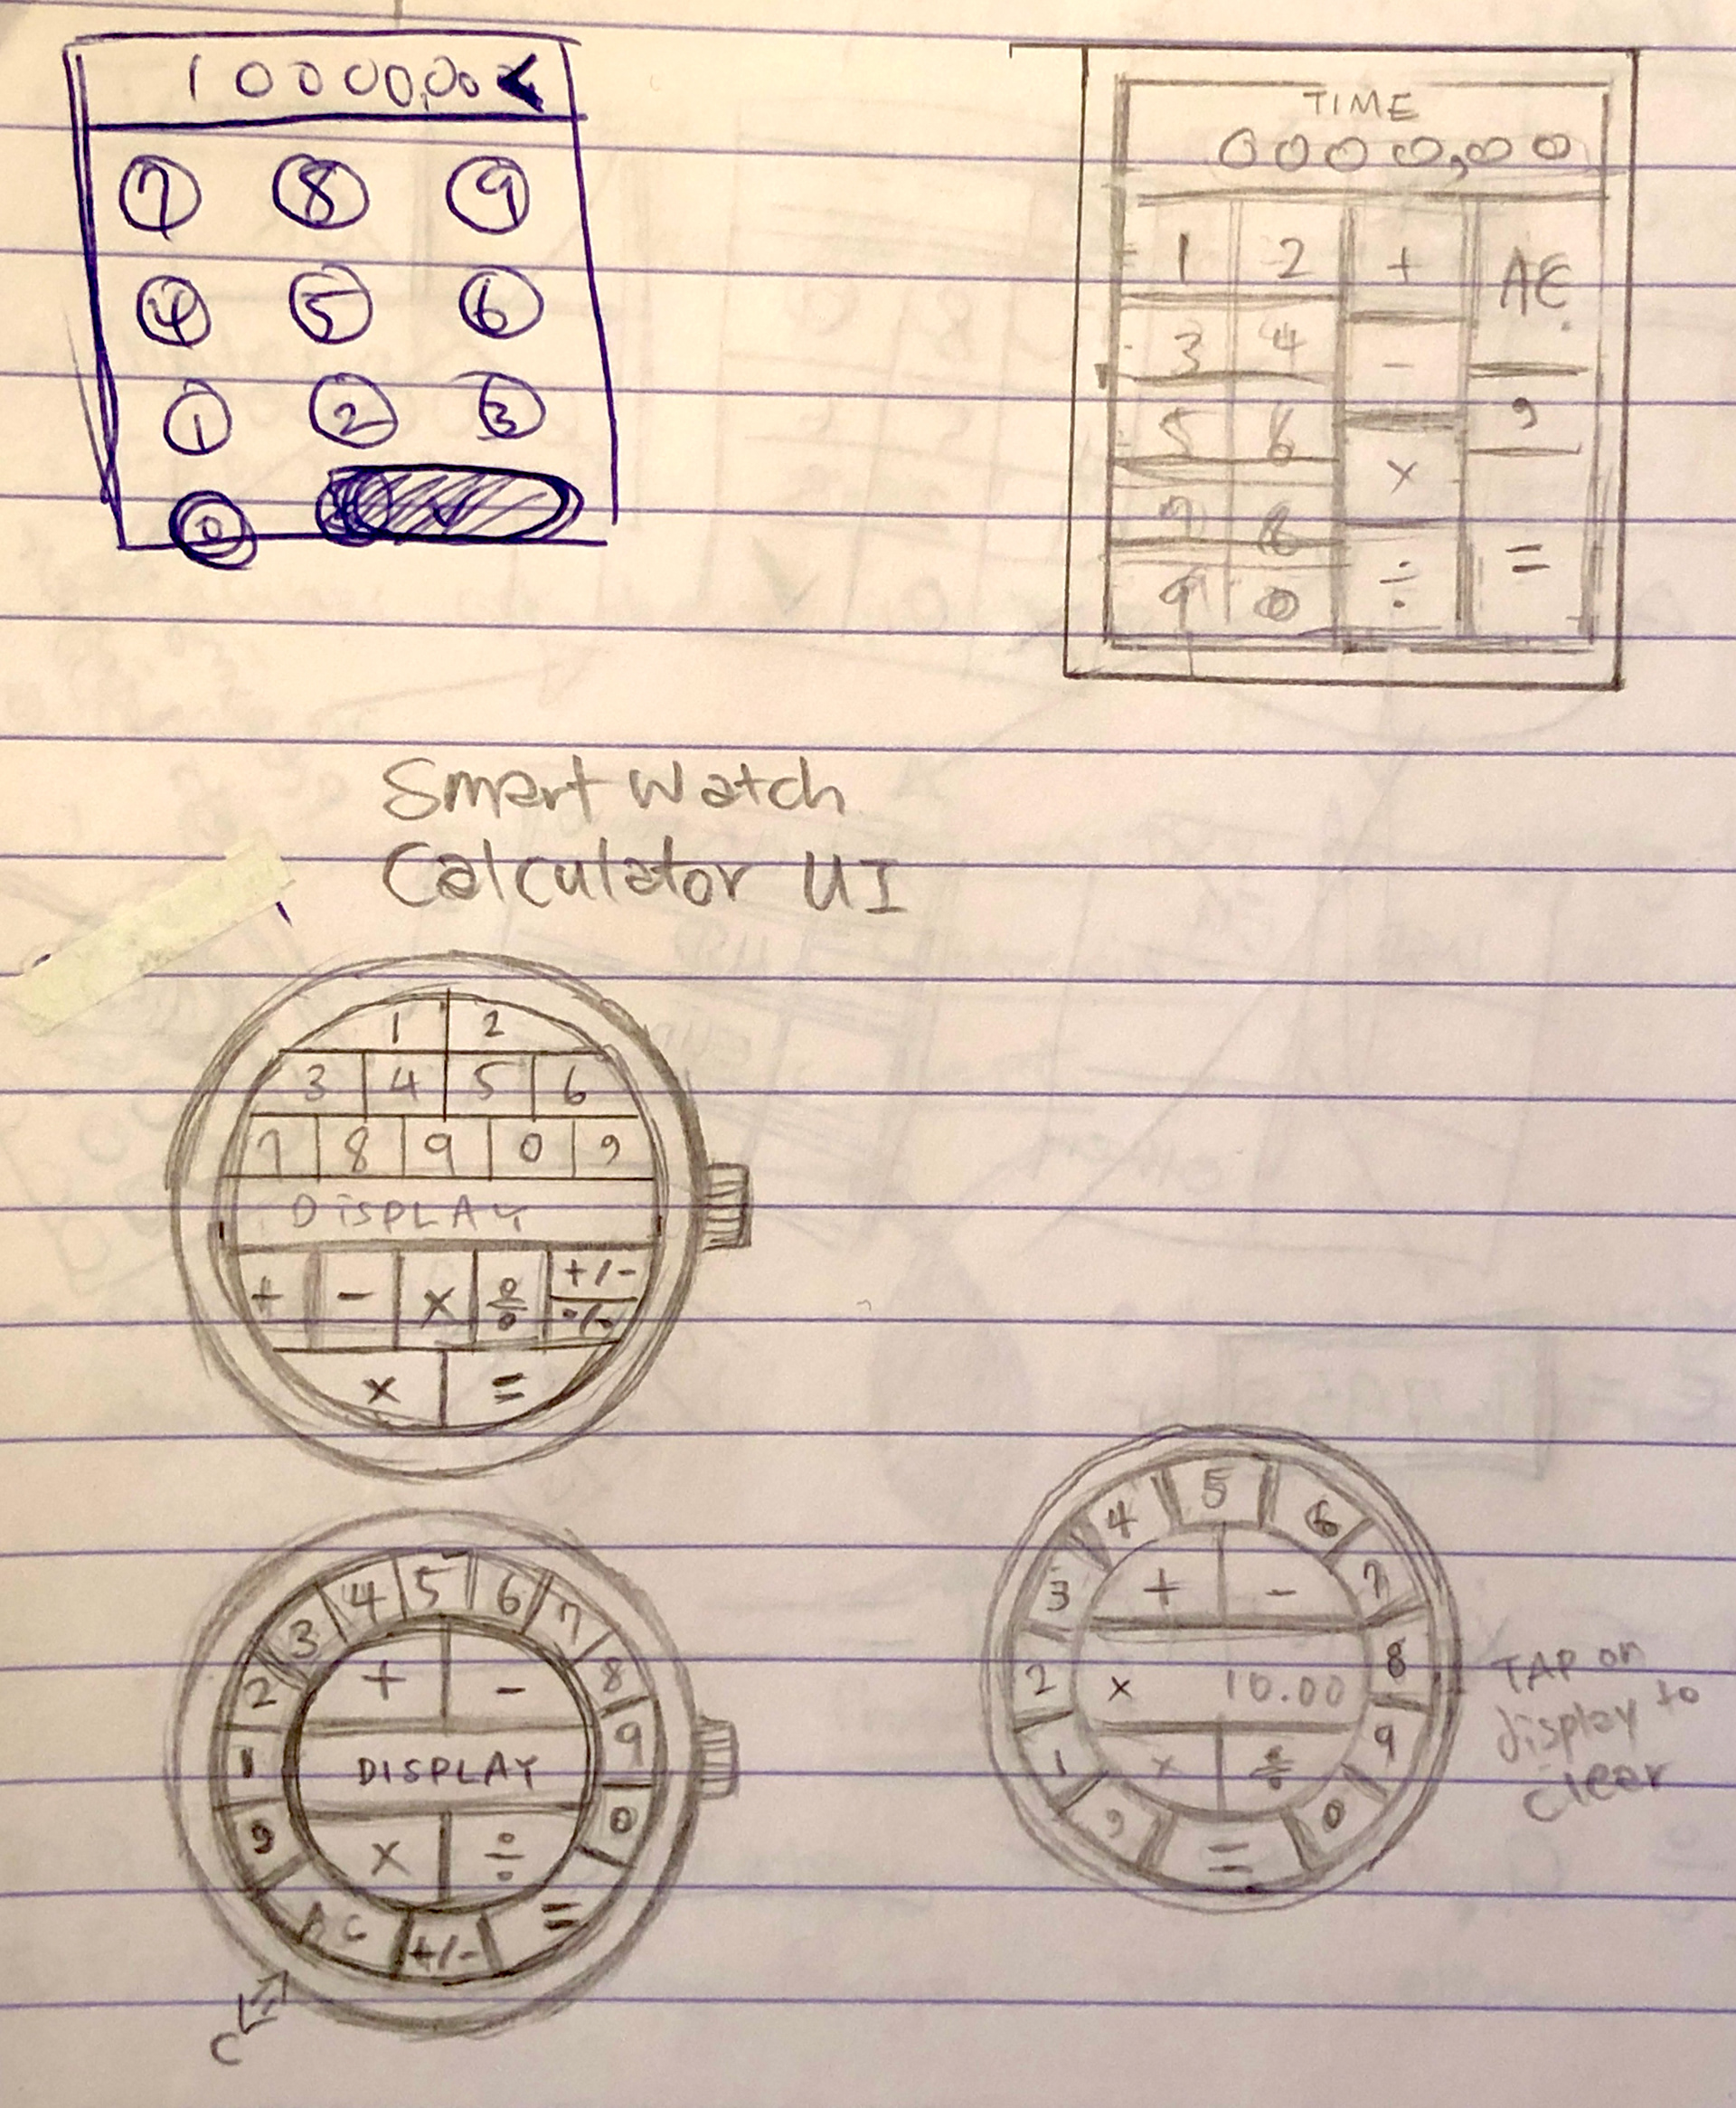 10000,00 <
7 8 9
4 5 6
1 2 3
0 ✓
TIME
0000,00
1 2 + AC
3 4 -
5 6 × ,
7 8
9 0 ÷ =
Smart Watch
Calculator UI
1 2
3 4 5 6
7 8 9 0 ,
DISPLAY
+ - × ÷ +/-
%
× =
4 5 6 7
3 8
2 + - 9
1 DISPLAY 0
, × ÷ =
AC +/-
C
4 5 6
3 + - 7
2 × 10.00 8
1 × ÷ 9
, = 0
TAP on
display to
clear